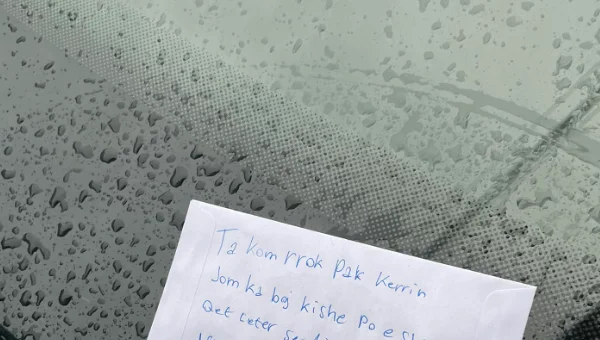 Ta kom rrok pak Kerrin
Jom ka boj kishe po e
Qet Leter